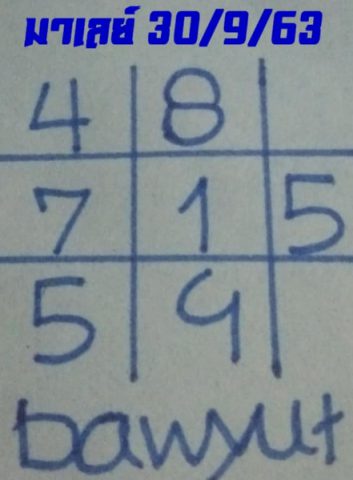 มาเลย์ 30/9/63
4 8
7 1 5
5 4
bawyut